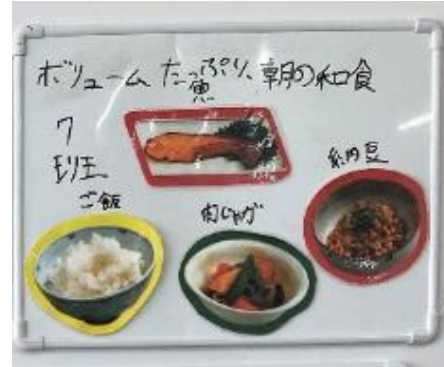 ボリューム たっぷり、朝の和食
魚
7
班
納豆
ご飯
肉じゃが